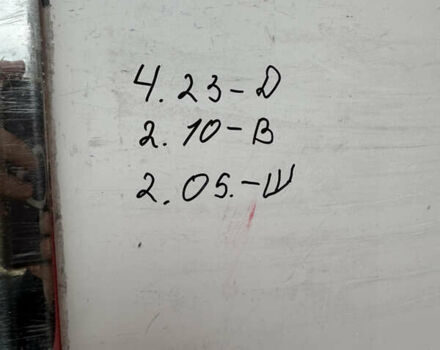 4.23-D
2.10-В
2.05.-Ш